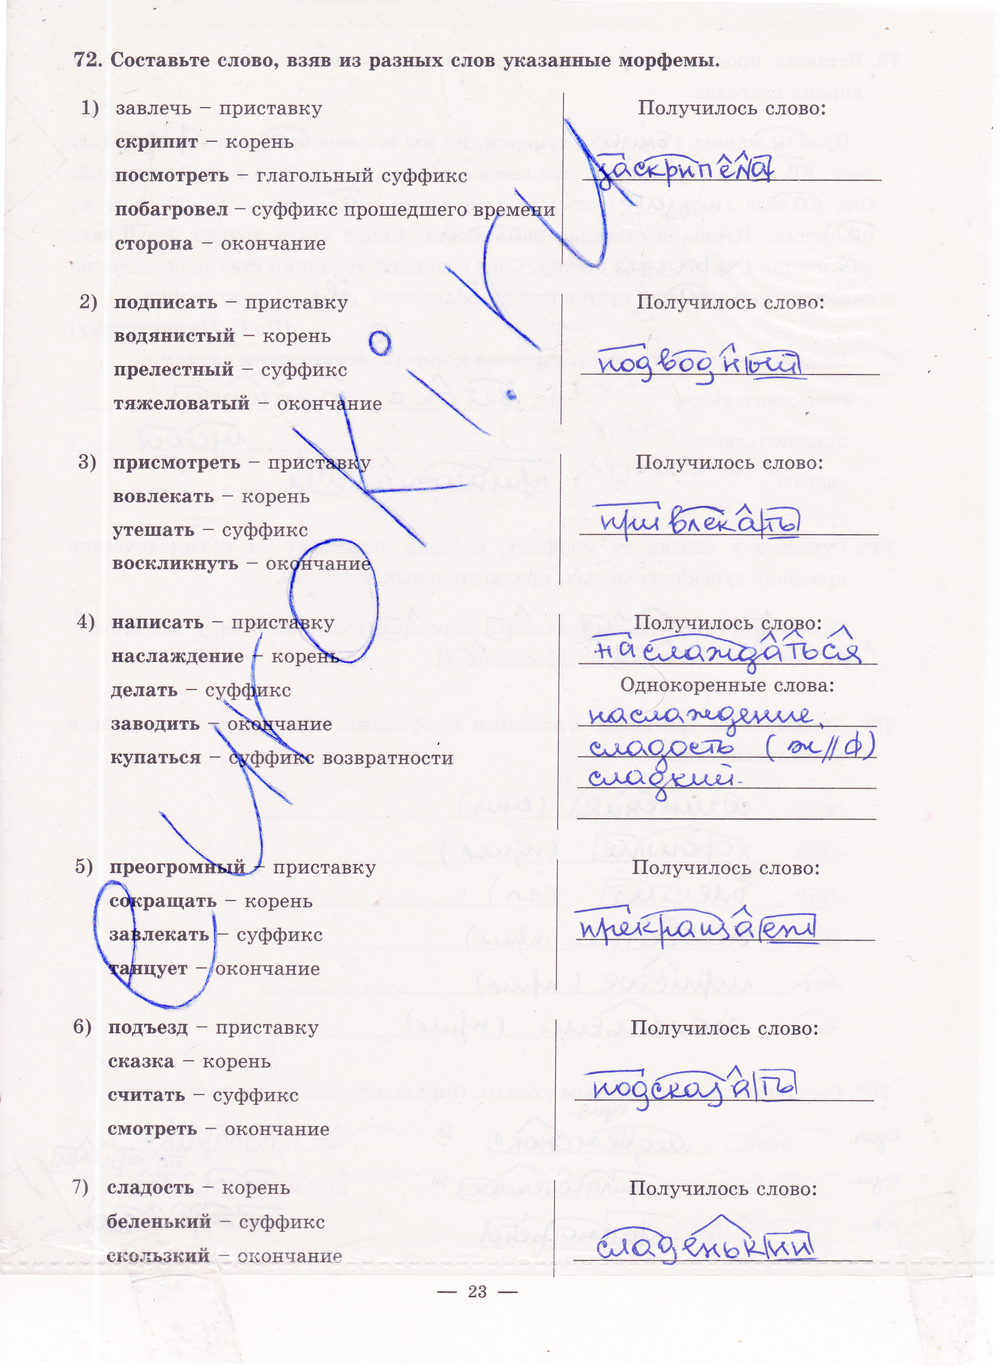 72. Составьте слово, взяв из разных слов указанные морфемы.
1) завлечь – приставку
Получилось слово:
скрипит – корень
посмотреть – глагольный суффикс
заскрипела
побагровел – суффикс прошедшего времени
сторона – окончание
2) подписать – приставку
Получилось слово:
водянистый – корень
прелестный – суффикс
подводный
тяжеловатый – окончание
3) присмотреть – приставку
Получилось слово:
вовлекать – корень
утешать – суффикс
привлекать
воскликнуть – окончание
4) написать – приставку
Получилось слово:
наслаждение – корень
наслаждаться
делать – суффикс
Однокоренные слова:
заводить – окончание
наслаждение,
купаться – суффикс возвратности
сладость (ж//д)
сладкий.
5) преогромный – приставку
Получилось слово:
сокращать – корень
завлекать – суффикс
прекращает
танцует – окончание
6) подъезд – приставку
Получилось слово:
сказка – корень
считать – суффикс
подсказать
смотреть – окончание
7) сладость – корень
Получилось слово:
беленький – суффикс
скользкий – окончание
сладенький
— 23 —